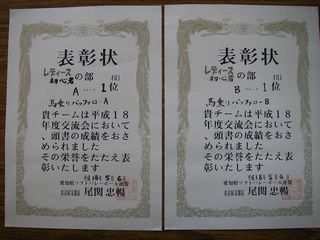 表彰状
レディース
初心者の部
A グループ 1位
馬乗りバッファローA
貴チームは平成18
年度交流会において
、頭書の成績をおさ
められました
その栄誉をたたえ表
彰いたします
平成18年5月6日
愛知県ソフトバレーボール連盟
名古屋支部長 尾関 忠暢
表彰状
レディース
初心者の部
B グループ 1位
馬乗りバッファローB
貴チームは平成18
年度交流会において
、頭書の成績をおさ
められました
その栄誉をたたえ表
彰いたします
平成18年5月6日
愛知県ソフトバレーボール連盟
名古屋支部長 尾関 忠暢